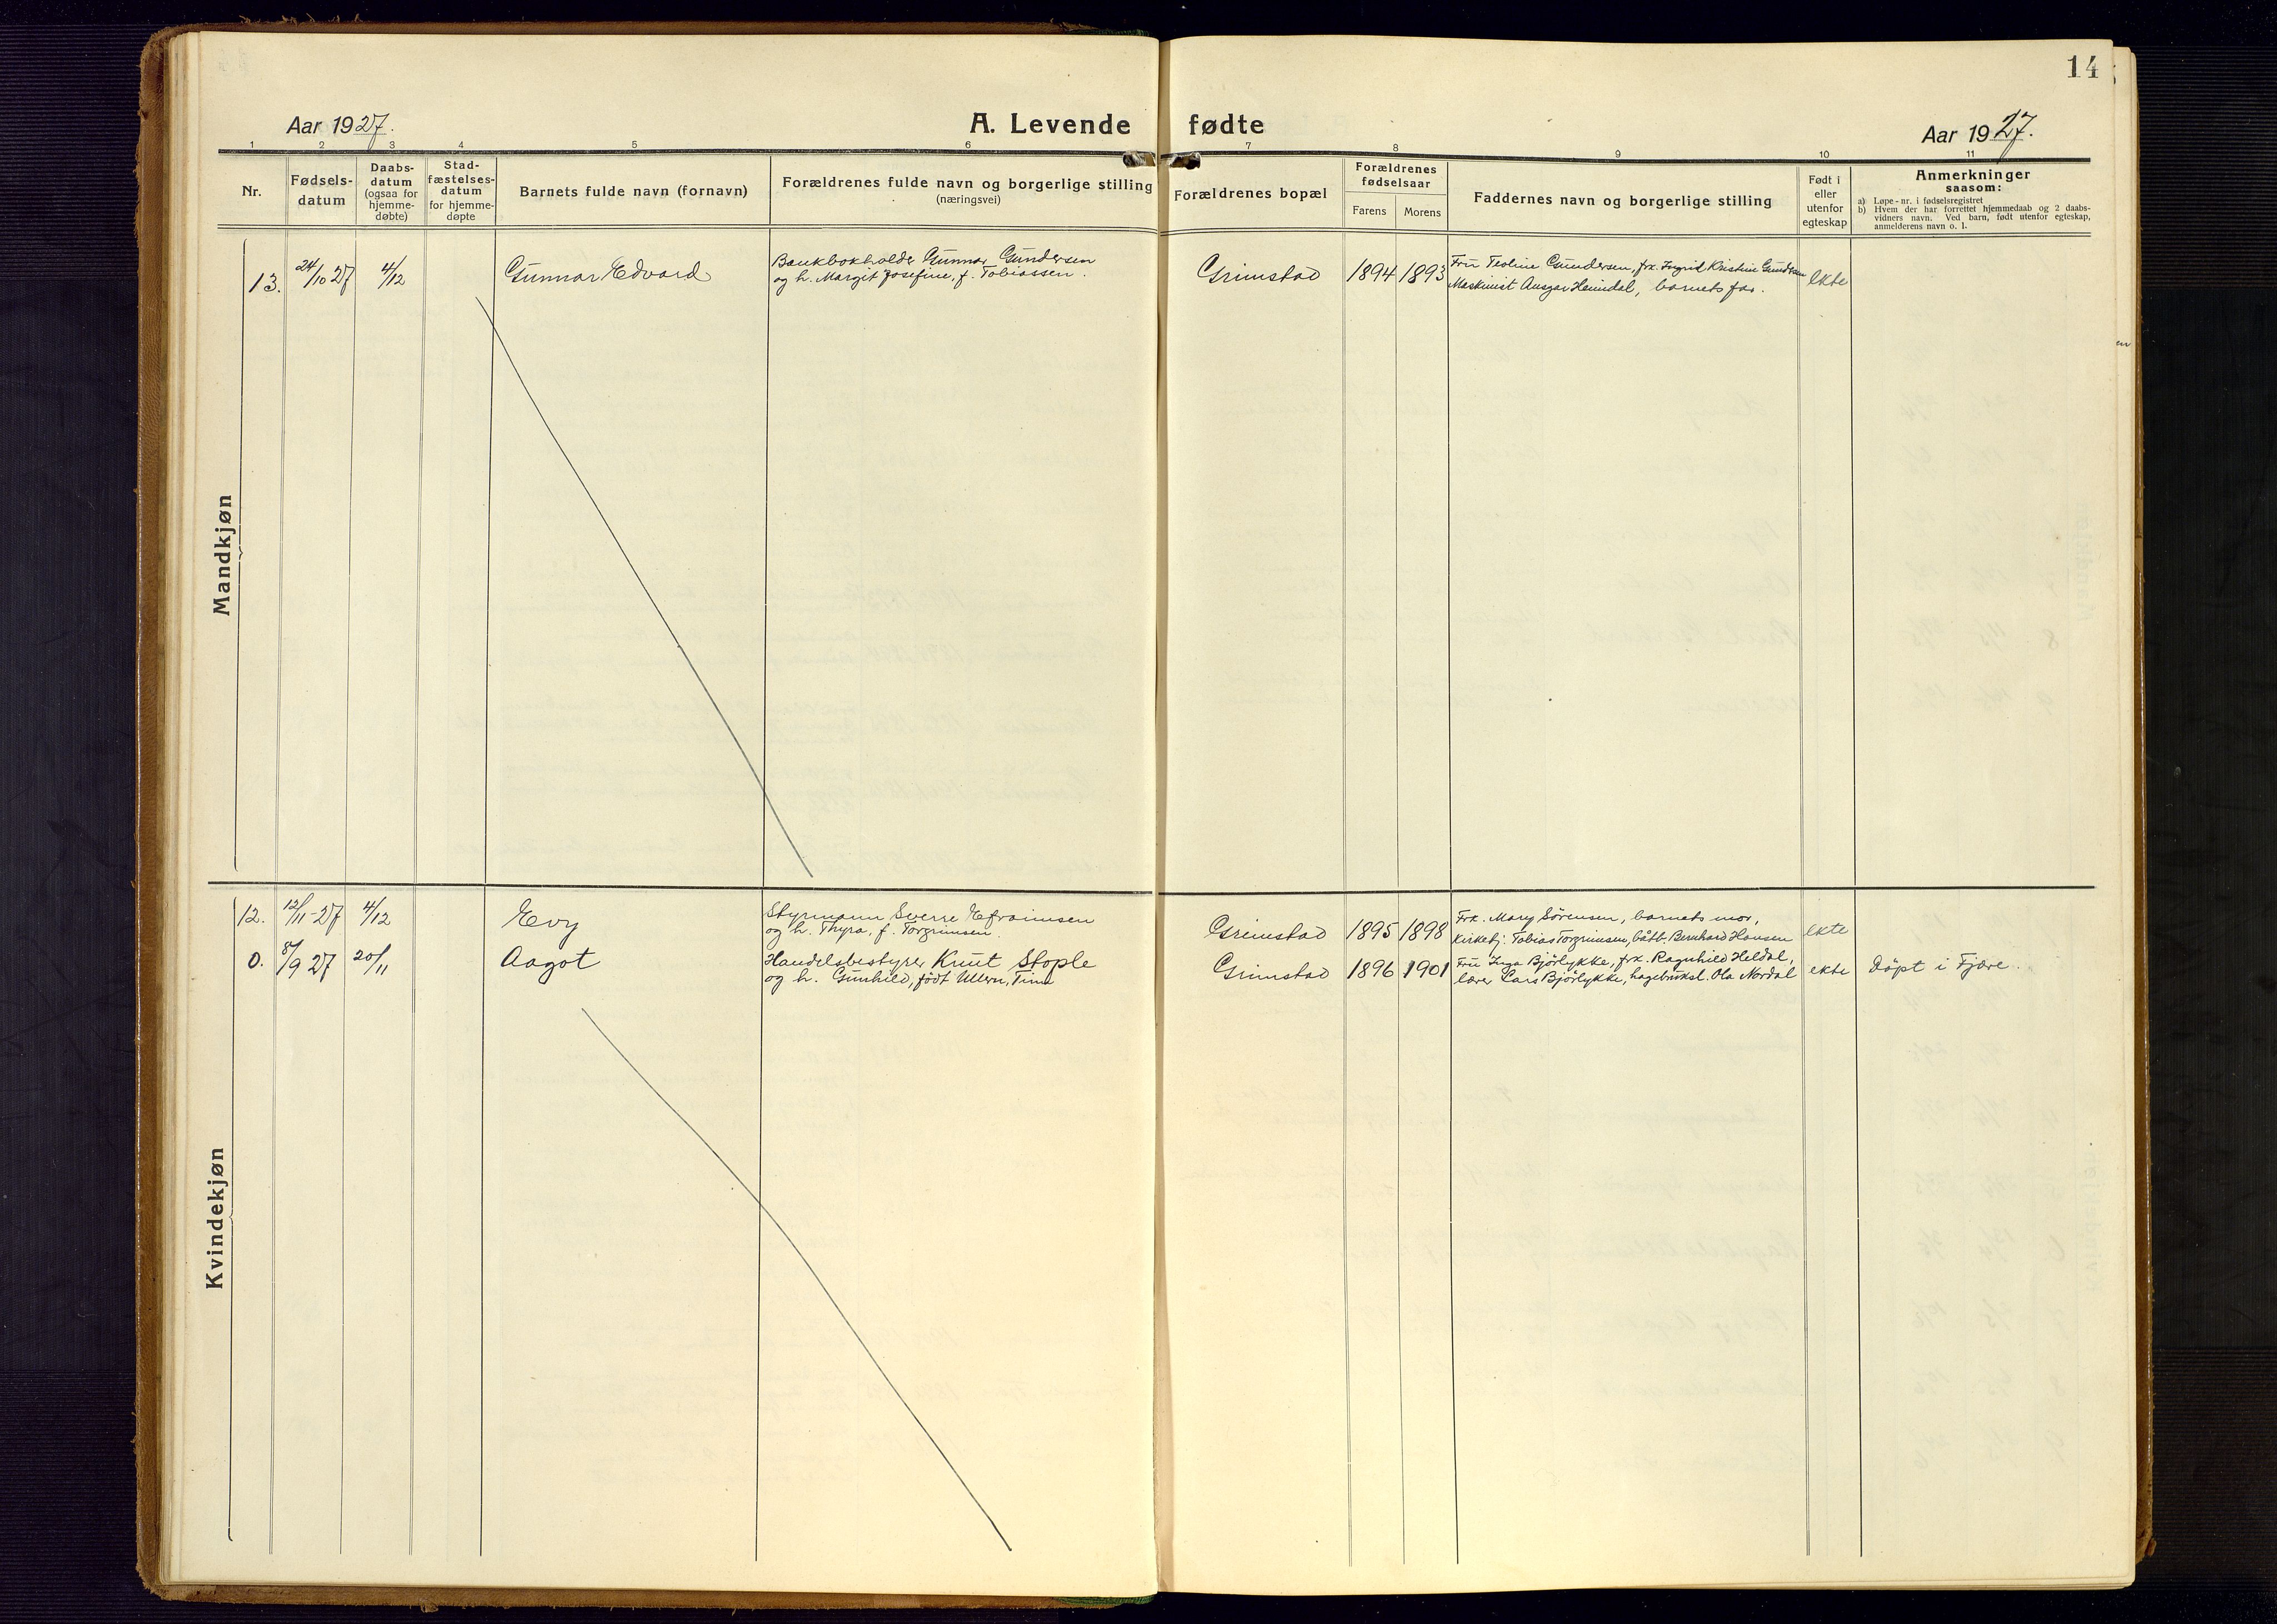 14
Aar 1927.
A. Levende fødte
Aar 1927.
1 2 3 4 5 6 7 8 9 10 11
Nr.
Fødsels-
datum
Daabs-
datum
(ogsaa for
hjemme-
døbte)
Stad-
fæstelses-
datum
for hjemme-
døpte
Barnets fulde navn (fornavn)
Forældrenes fulde navn og borgerlige stilling
(næringsvei)
Forældrenes bopæl
Forældrenes
fødselsaar
Farens Morens
Faddernes navn og borgerlige stilling
Født i
eller
utenfor
egteskap
Anmerkninger
saasom:
a) Løpe-nr. i fødselsregistret
b) Hvem der har forrettet hjemmedaab og 2 daabs-
vidners navn. Ved barn, født utenfor egteskap,
anmelderens navn o. l.
Mandkjøn
13. 24/10 27 4/12 Gunnar Edvard
Bankbokholder Gunnar Gundersen
og h. Margit Josefine, f. Tobiassen.
Grimstad 1894 1893
Fru Teoline Gundersen, frk. Ingrid Kristine Gundersen
Maskinist Ansgar Heimdal, barnets far.
ekte
Kvindekjøn
12. 12/11-27 4/12 Evy
Styrmann Sverre Efraimsen
og h. Thyra, f. Torgrimsen.
Grimstad 1895 1898
Frk. Mary Sörensen, barnets mor,
Kirketj. Tobias Torgrimsen, båtb. Bernhard Hansen
ekte
0. 8/9 27 20/11 Aagot
Handelsbestyrer Knut Stople
og h. Gunhild, født Ullern, Tinn
Grimstad 1896 1901
Fru Inga Björlykke, frk. Ragnhild Heldal,
lærer Lars Björlykke, hagebruksl. Ola Nordal
ekte Döpt i Fjære.